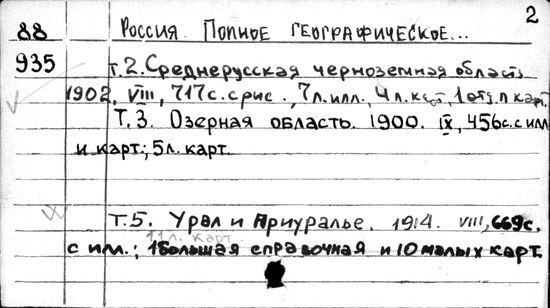 2
88 Россия. Полное географическое...
935 т.2. Среднерусская черноземная область
1902, VIII, 717с. с рис., 7л. илл., 4л. карт, 1 отд. л карт.
Т.3. Озерная область. 1900. IX, 456с. с илл
и карт.; 5л. карт.
Т.5. Урал и Приуралье. 1914. VIII, 669с.
11л. карт.
с илл.; 1 большая справочная и 10 малых карт.